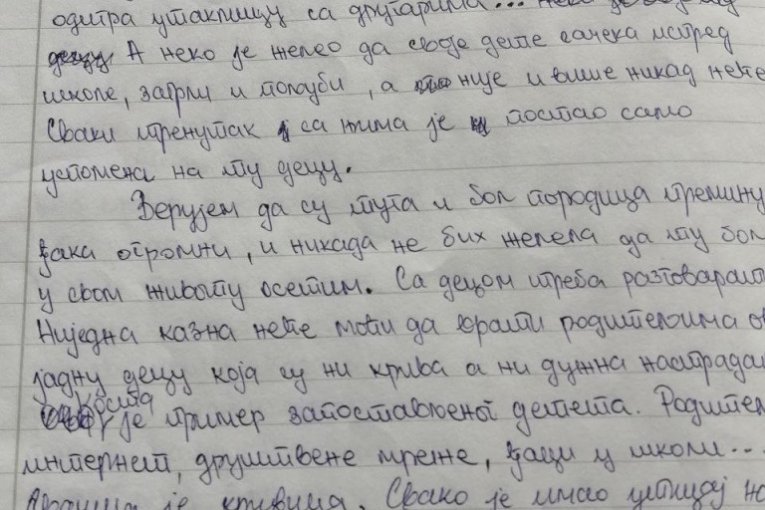 одигра утакмицу са другарима... неко је
А неко је желео да своје дете сачека испред
школе, загрли и пољуби, а није и више никад неће
Сваки тренутак са њима је постао само
успомена на ту децу.
Верујем да су туга и бол породица премину
ђака огромни, и никада не бих желела да ту бол
у свом животу осетим. Са децом треба разговарат
Ниједна казна неће моћи да врати родитељима ов
јадну децу која су ни крива а ни дужна настрадал
Коста је пример запостављеног детета. Родител
интернет, друштвене мреже, ђаци у школи...
је кривица. Свако је имао утицај на